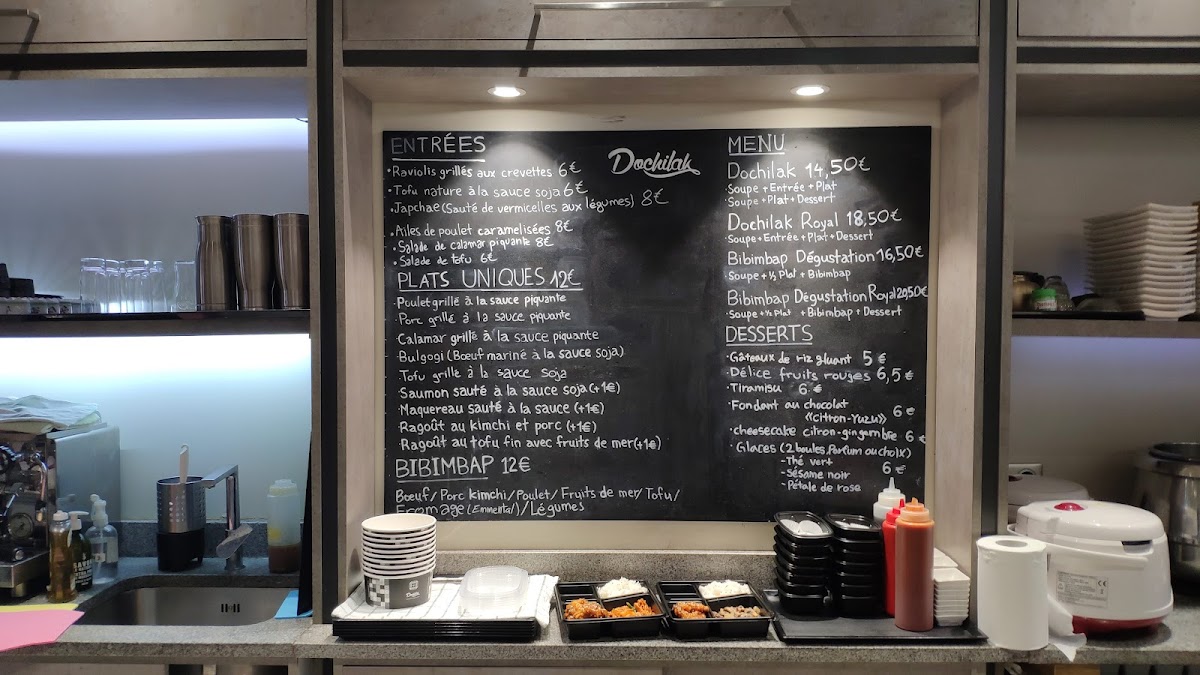 ENTRÉES
• Raviolis grillés aux crevettes 6€
• Tofu nature à la sauce soja 6€
• Japchae (Sauté de vermicelles aux légumes) 8€
• Ailes de poulet caramelisées 8€
• Salade de calamar piquante 8€
• Salade de tofu 6€
PLATS UNIQUES 12€
· Poulet grillé à la sauce piquante
· Porc grillé à la sauce piquante
· Calamar grillé à la sauce piquante
· Bulgogi (Bœuf mariné à la sauce soja)
· Tofu grillé à la sauce soja
· Saumon sauté à la sauce soja (+1€)
· Maquereau sauté à la sauce (+1€)
· Ragoût au kimchi et porc (+1€)
· Ragoût au tofu fin avec fruits de mer (+1€)
BIBIMBAP 12€
Bœuf / Porc kimchi / Poulet / Fruits de mer / Tofu /
Fromage (Emmental) / Légumes
Dochilak
MENU
Dochilak 14,50€
· Soupe + Entrée + Plat
· Soupe + Plat + Dessert
Dochilak Royal 18,50€
· Soupe + Entrée + Plat + Dessert
Bibimbap Dégustation 16,50€
· Soupe + ½ Plat + Bibimbap
Bibimbap Dégustation Royal 20,50€
· Soupe + ½ Plat + Bibimbap + Dessert
DESSERTS
· Gâteaux de riz gluant 5 €
· Délice fruits rouges 6,5 €
· Tiramisu 6 €
· Fondant au chocolat
«Citron-Yuzu» 6 €
· cheesecake citron-gingembre 6 €
· Glaces (2 boules, Parfum au choix)
- Thé vert 6 €
- Sésame noir
- Pétale de rose